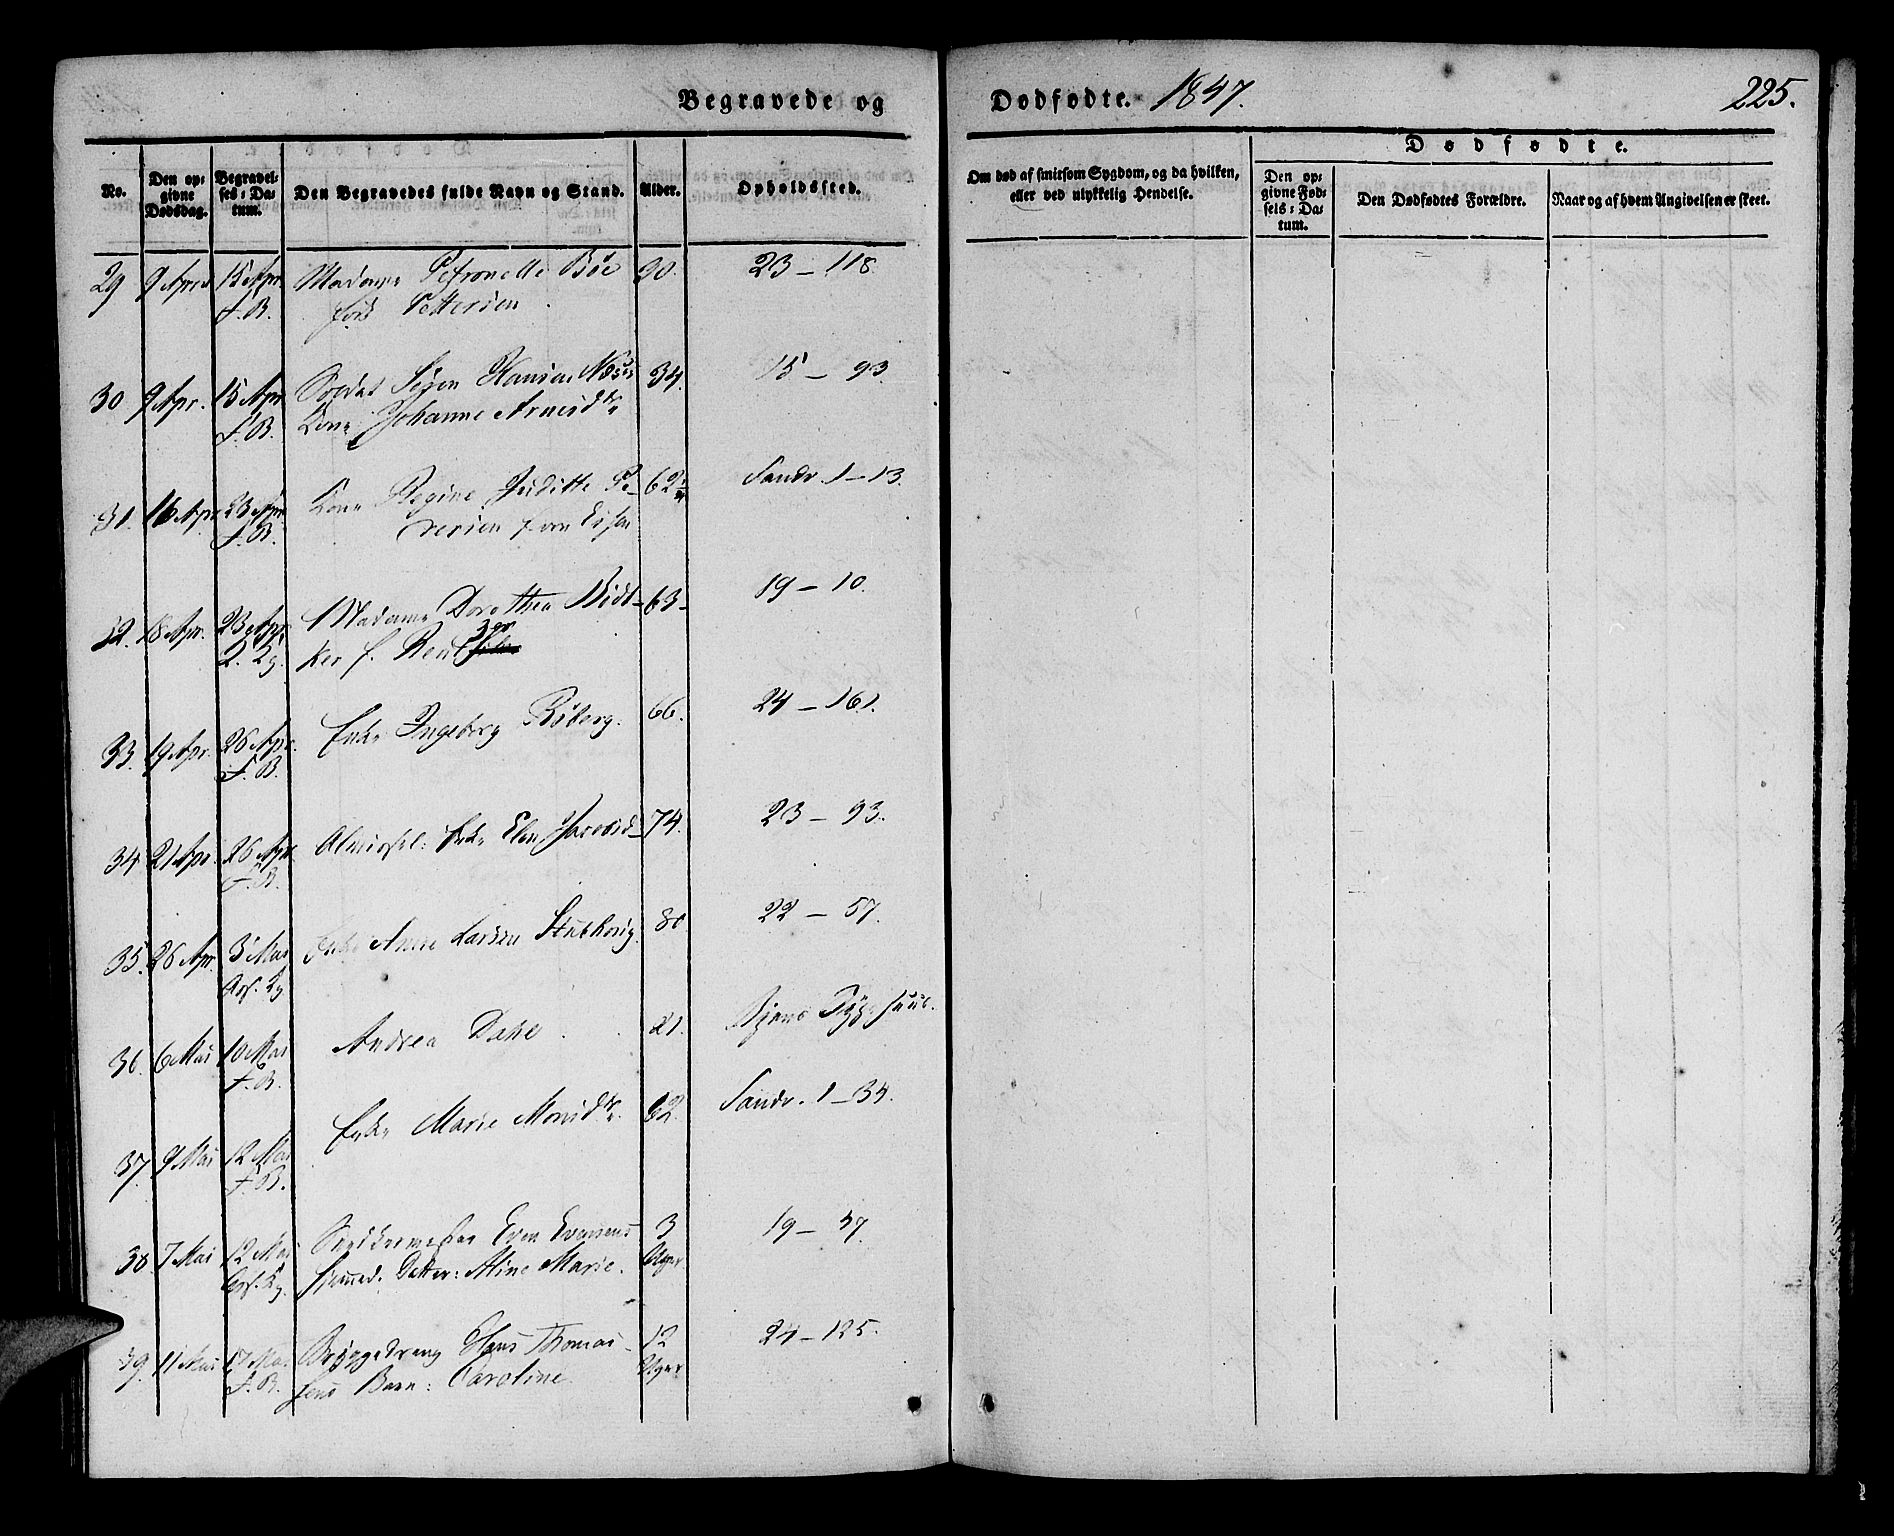 Begravede og Dødfødte. 1847. 225.
No. Den opgivne Dødsdag. Begravelses-Datum. Den Begravedes fulde Navn og Stand. Alder. Opholdssted. Om død af smitsom Sygdom, og da hvilken, eller ved ulykkelig Hendelse. Dødfødte. Den opgivne Fødsels-Datum. Den Dødfødtes Forældre. Naar og af hvem Angivelsen er skeet.
29 9 April 15 Apr. Madame Petronelle Böe 90. 23 – 118.
F. B. Pettersen
30 9 Apr. 15 Apr. Soldat Hansen 34. 15 – 93.
F. B. Kone Johanne Arnesdr
31. 16 Apr 23 Apr. Kone Regine Juditte Pe- 62 Sandv. 1 – 13.
F. B. tersen f. von
32. 18 Apr. 23 Apr. Madame Dorothea 63 19 – 10.
ker f.
33. 19 Apr. 26 Apr. Enke Ingeborg Röberg. 66. 24 – 161.
F. B.
34 21 Apr. 26 Apr. Enke Elen 74. 23 – 93.
F. B.
35. 26 Apr. 3 Mai Enke Anne Larsen 80 22 – 57.
Kg
36. 6 Mai 10 Mai Andrea Dahl 21. Sygehuus.
F. B.
37. 9 Mai 12 Mai Enke Marie Monsdr. 62. Sandv. 1 – 34.
F. B.
38. 7 Mai 12 Mai Snedkermester Even Evensens 3 19 – 47.
Kg. Datter: Aline Marie. Uger
39. 11 Mai 17 Mai Bryggedreng Hans Thomas- 12 24 – 125.
F. B. sens Barn: Caroline. Uger